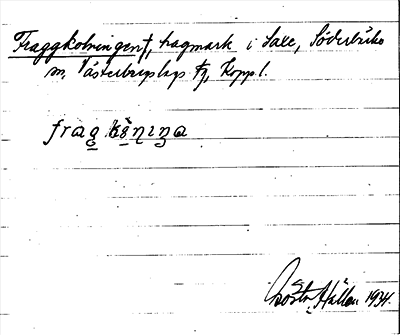 Fraggkolningen†, hagmark i Saxe, Söderbärke
sn, Västerbergslags tg, Koppl.
frag kǫ̀ṇiṇa
Gösta Hällen 1934.